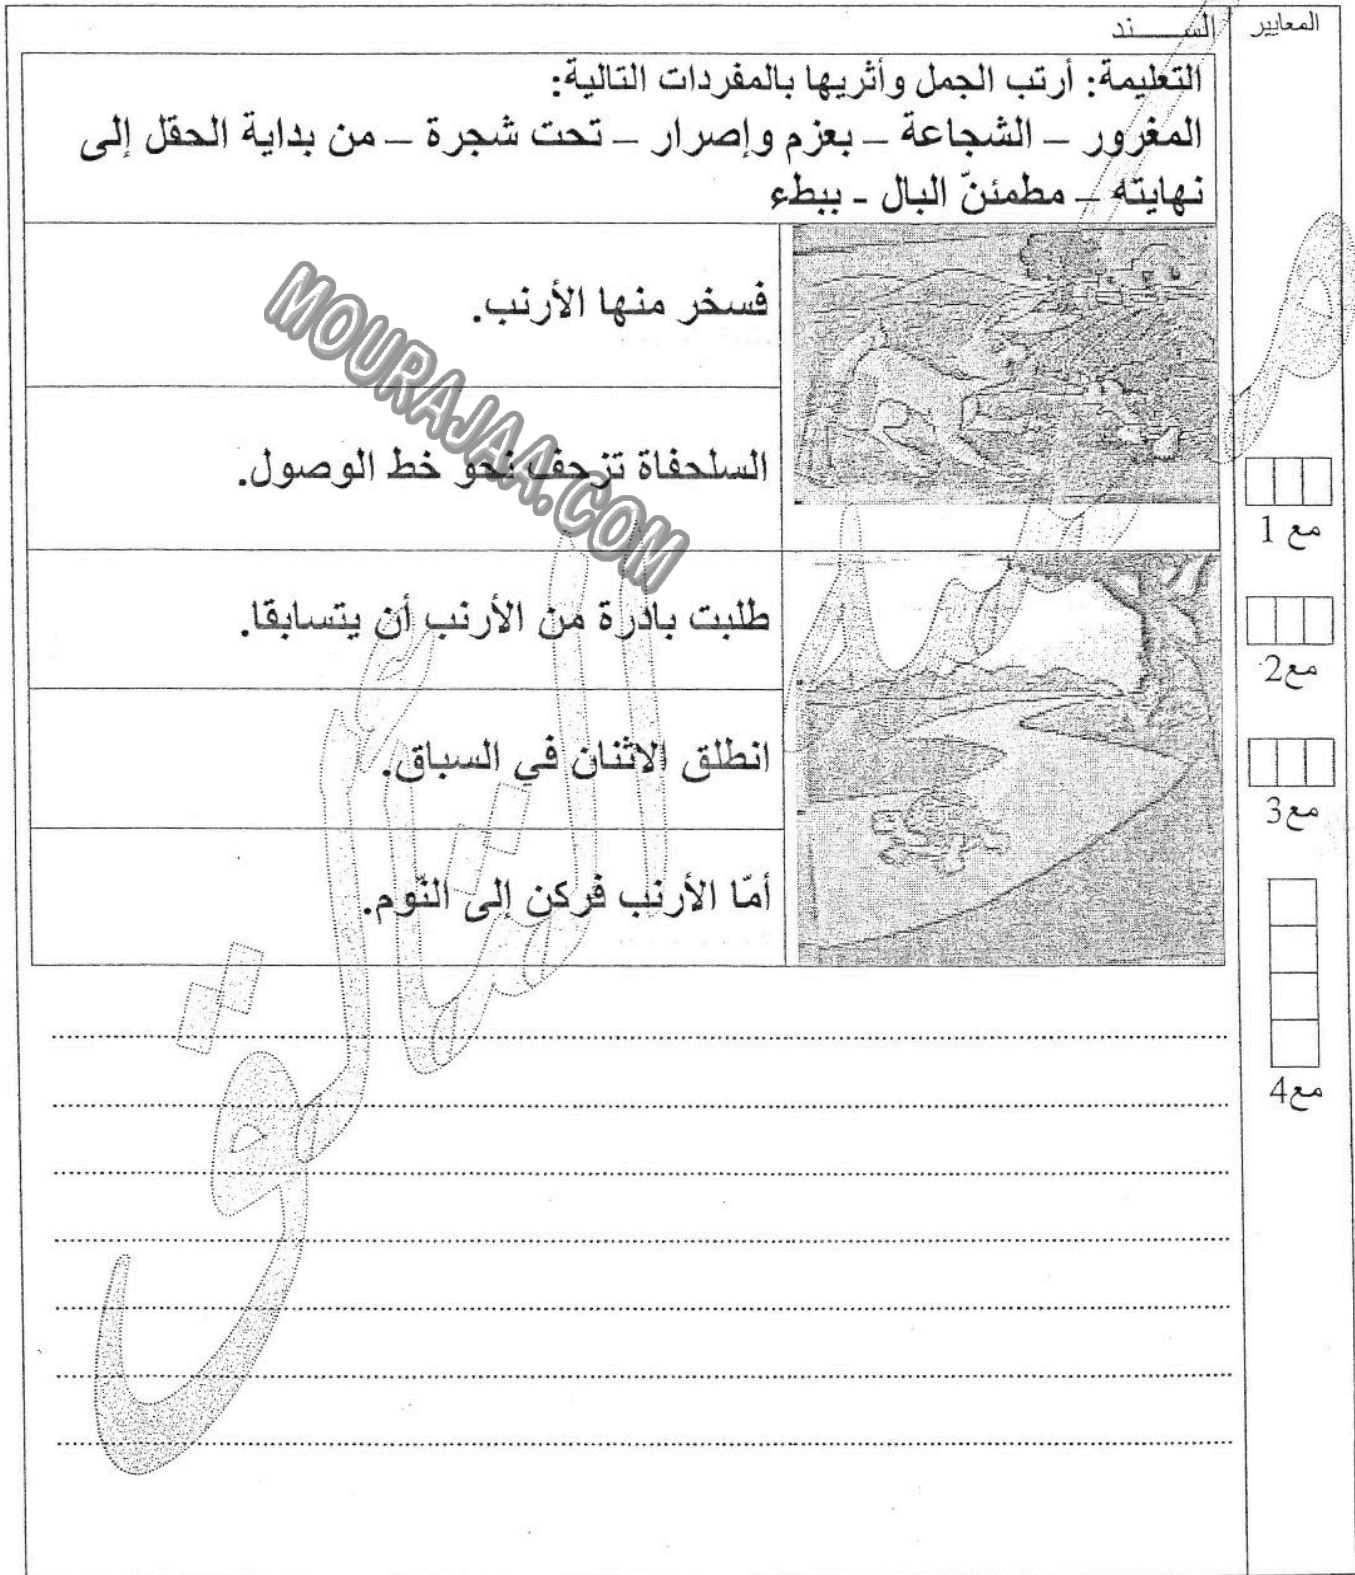 المعايير
الســـــند
التعليمة: أرتب الجمل وأثريها بالمفردات التالية:
المغرور – الشجاعة – بعزم وإصرار – تحت شجرة – من بداية الحقل إلى
نهايته – مطمئنّ البال - ببطء
فسخر منها الأرنب.
السلحفاة تزحف نحو خط الوصول.
طلبت بادرة من الأرنب أن يتسابقا.
انطلق الاثنان في السباق.
أمّا الأرنب فركن إلى النّوم.
مع 1
مع2
مع3
مع4
MOURAJAA.COM